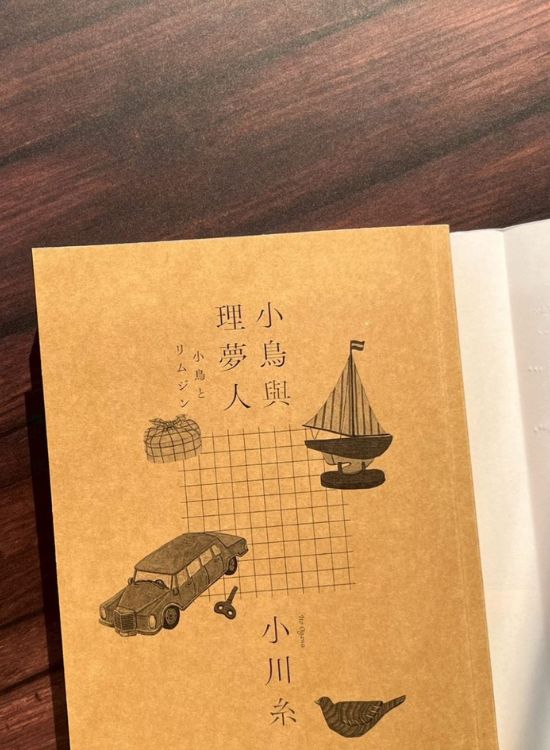 小鳥與
理夢人
小鳥と
リムジン
小川糸
Ito Ogawa